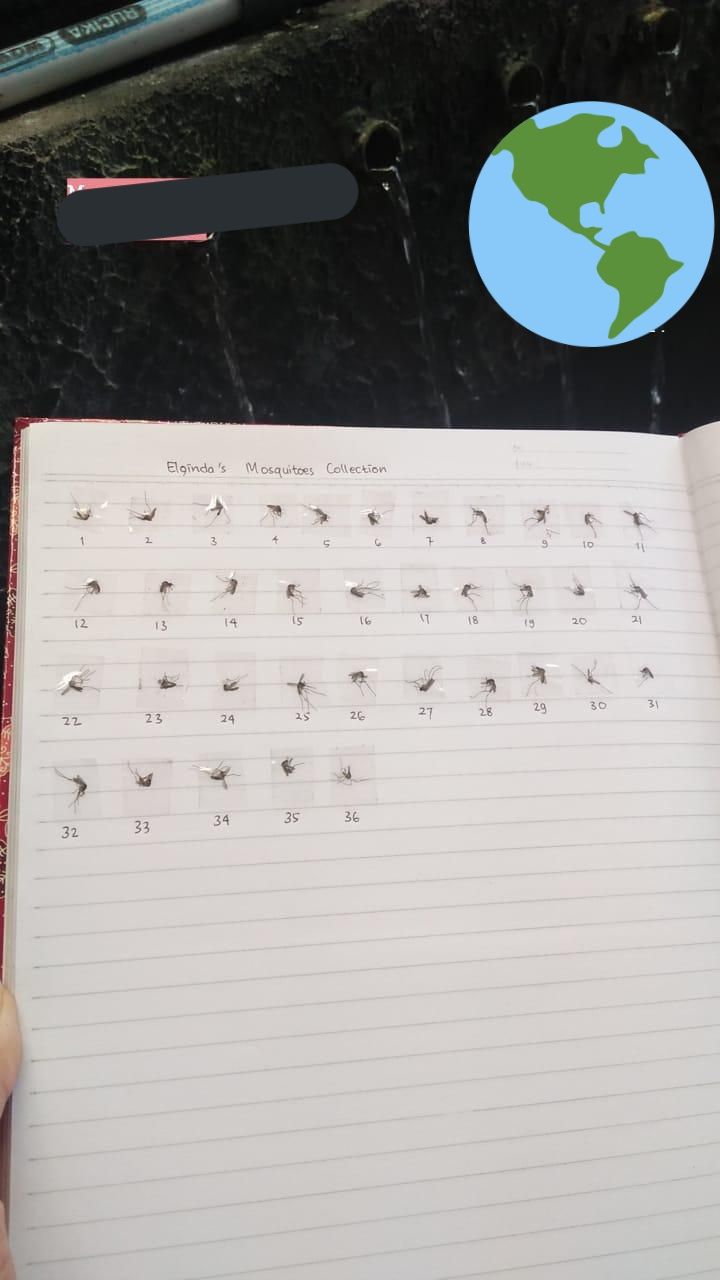 BUCIKA
Elginda's Mosquitoes Collection
1 2 3 4 5 6 7 8 9 10 11
12 13 14 15 16 17 18 19 20 21
22 23 24 25 26 27 28 29 30 31
32 33 34 35 36